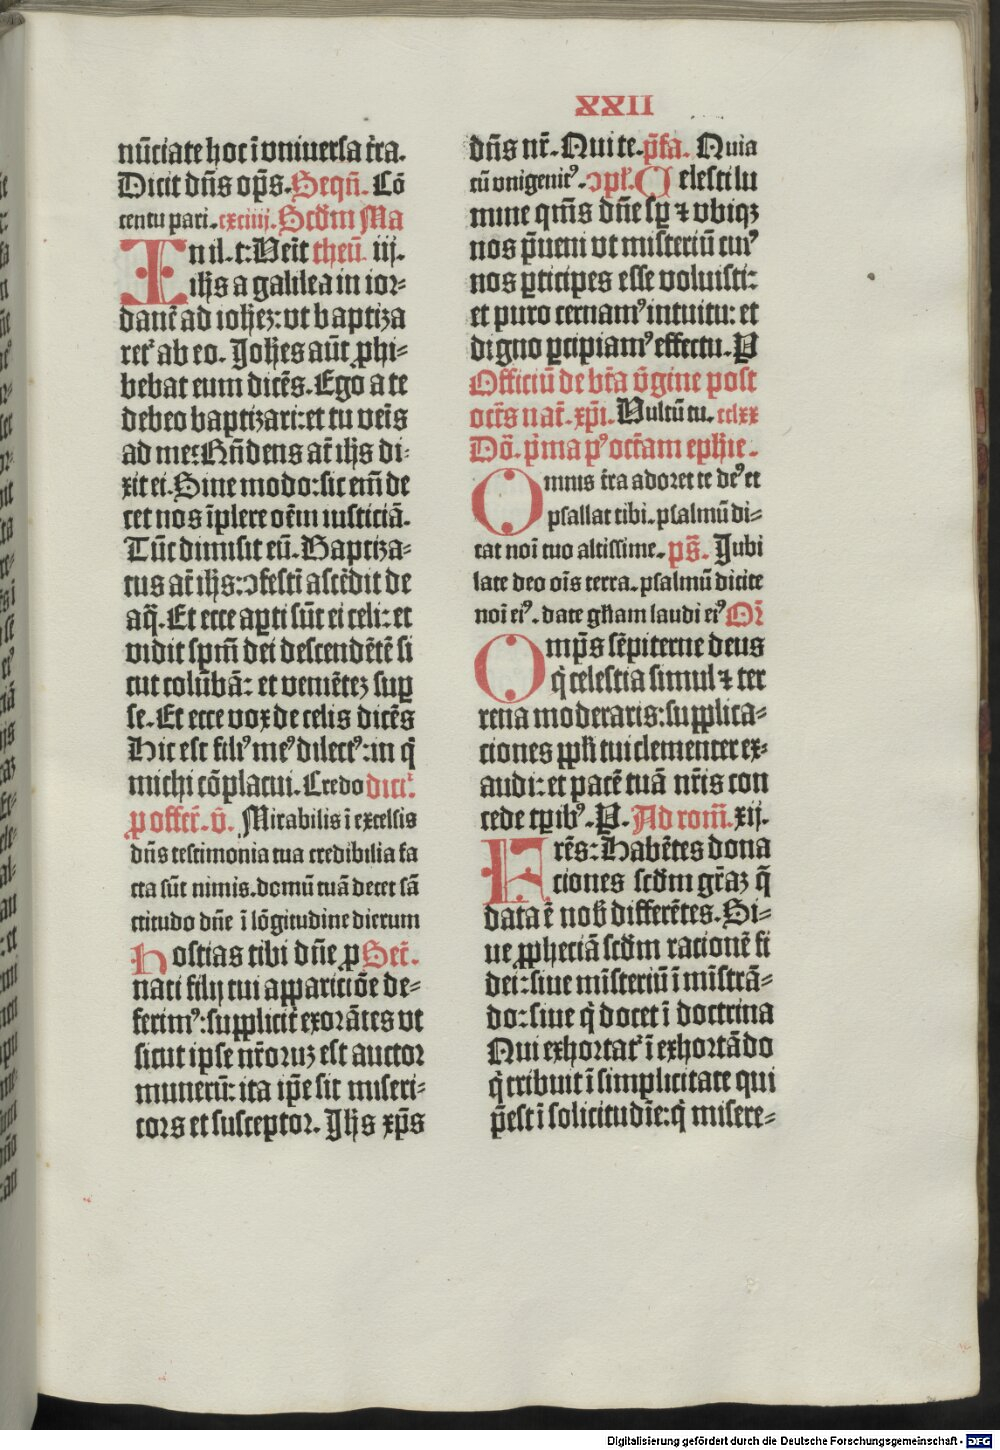 XXII
nūciate hoc ī vniuersa t̄ra.
Dicit dn̄s op̄s. Seqn̄. Cō
centu pari. cxciiij. Scd̄m Ma
In il. t: Ueīt theū. iij.
ih̄s a galilea in ior-
danē ad ioh̄ez: vt baptiza
ret᷑ ab eo. Joh̄es aūt ꝓhi-
bebat eum dicēs. Ego a te
debeo baptizari: et tu veīs
ad me: Rn̄dens at̄ ih̄s di-
xit ei. Sine modo: sic em̄ de
cet nos īplere oēm iusticiā.
Tūc dimisit eū. Baptiza-
tus at̄ ih̄s: ꝯfestī ascēdit de
aq̄. Et ecce aꝑti sūt ei celi: et
vidit spm̄ dei descendētē si
cut colūbā: et veniētez suꝑ
se. Et ecce vox de celis dicēs
Hic est filiꝰ meꝰ dilectꝰ: in q̄
michi cōplacui. Credo dicit᷑.
ꝑ offer̄. v̄. Mirabilis ī excelsis
dn̄s testimonia tua credibilia fa
cta sūt nimis. domū tuā decet sā
ctitudo dn̄e ī lōgitudine dierum
Hostias tibi dn̄e ꝓ Secr̄.
nati filij tui apparitiōe de-
ferimꝰ: supplicit̄ exorātes vt
sicut ipse nr̄oruz est auctor
munerū: ita ip̄e sit miseri-
cors et susceptor. Jh̄s xp̄s
dn̄s nr̄. Qui te. p̄fa. Quia
cū vnigenitꝰ. ꝯpl̄. Celesti lu
mine qm̄s dn̄e sꝑ ⁊ vbiqꝫ
nos p̄ueni vt misteriū cuiꝰ
nos ꝑticipes esse voluisti:
et puro cernamꝰ intuitu: et
digno ꝑcipiamꝰ effectu. P
Officiū de bt̄a v̄gine post
oct̄s nat̄. xp̄i. Uultū tu. cclxx
Dō. p̄ma pꝰ oct̄am eph̄ie.
Omnis t̄ra adoret te deꝰ et
psallat tibi. psalmū di-
cat noī tuo altissime. ps̄. Jubi
late deo oīs terra. psalmū dicite
noī eiꝰ. date gl̄iam laudi eiꝰ Or̄
Omp̄s sēpiterne deus
q̄ celestia simul ⁊ ter
rena moderaris: supplica-
ciones ppl̄i tui clementer ex-
audi: et pacē tuā nr̄is con
cede tꝑibꝰ. P. Ad rom̄. xij.
Frēs: Habētes dona
ciones scd̄m gr̄az q̄
data ē nob̄ differētes. Si-
ue ꝓpheciā scd̄m racionē fi
dei: siue mīsteriū ī mīstrā-
do: siue q̄ docet ī doctrina
Qui exhortat᷑ ī exhortādo
q̄ tribuit ī simplicitate qui
p̄est ī solicitudīe: q̄ misere-
Digitalisierung gefördert durch die Deutsche Forschungsgemeinschaft - DFG